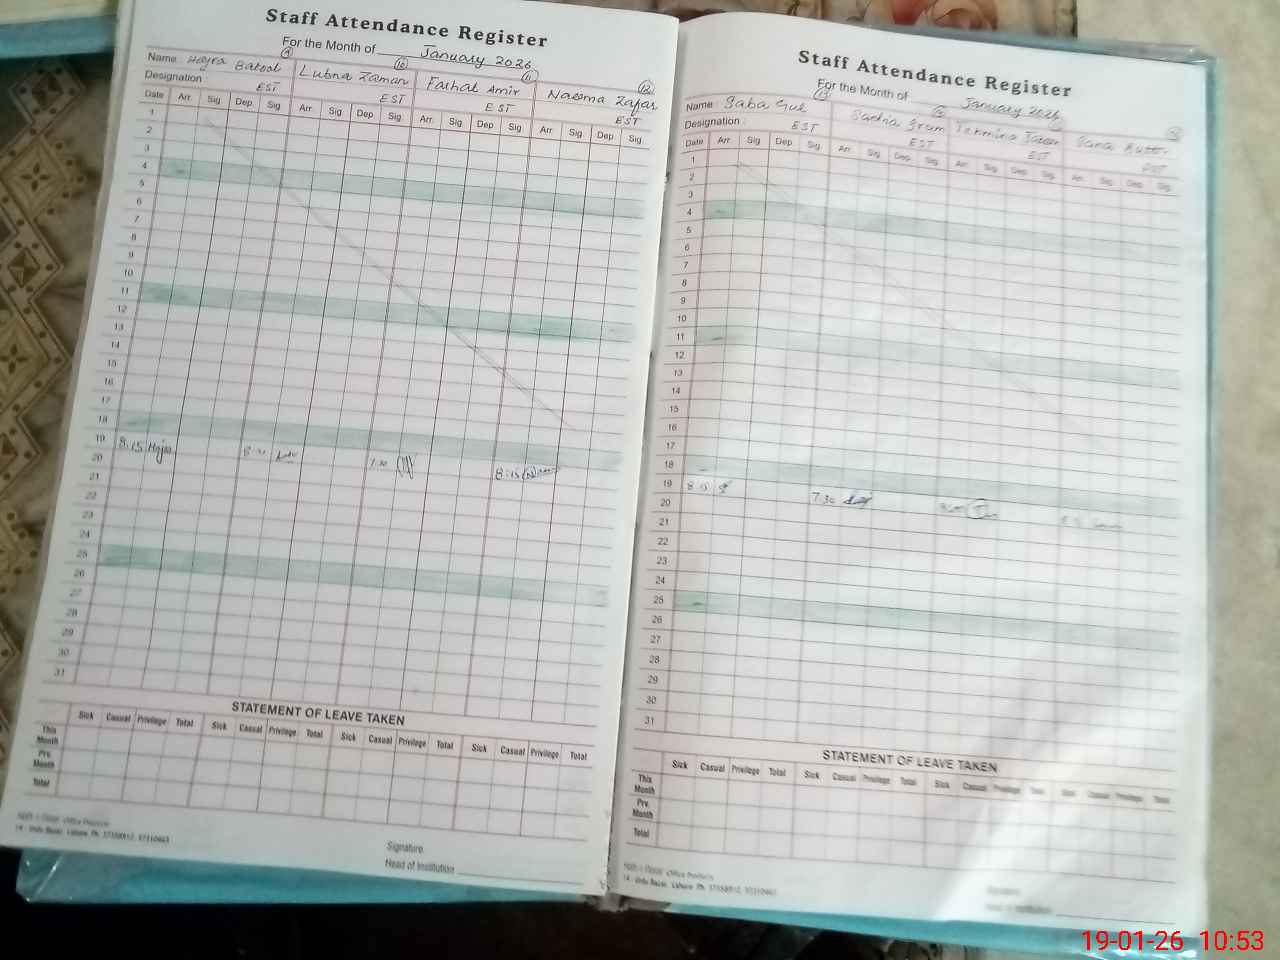 Staff Attendance Register
For the Month of January 2026
9 10 11 12
Name: Hajra Batool Lubna Zaman Farhat Amir Naesma Zafar
Designation: EST EST EST EST
Date Arr. Sig Dep. Sig Arr. Sig Dep. Sig Arr. Sig Dep Sig Arr. Sig Dep Sig
1
2
3
4
5
6
7
8
9
10
11
12
13
14
15
16
17
18
19 8.15 Hajra 7.30 8:15
20
21
22
23
24
25
26
27
28
29
30
31
STATEMENT OF LEAVE TAKEN
Sick Casual Privilege Total Sick Casual Privilege Total Sick Casual Privilege Total Sick Casual Privilege Total
This Month
Pre. Month
Total
Office Products
14 - Urdu Bazar, Lahore Ph.
Signature
Head of Institution
Staff Attendance Register
For the Month of January 2026
13
Name: Saba Gul Sadia
Designation: EST EST EST
Date Arr. Sig Dep. Sig Arr. Sig Dep. Sig Arr. Sig Dep. Sig Arr. Sig Dep. Sig
1
2
3
4
5
6
7
8
9
10
11
12
13
14
15
16
17
18
19 8.15 7.30
20
21
22
23
24
25
26
27
28
29
30
31
STATEMENT OF LEAVE TAKEN
Sick Casual Privilege Total Sick Casual Privilege Total Sick Casual Privilege Total Sick Casual Privilege Total
This Month
Pre. Month
Total
Office Products
14 - Urdu Bazar, Lahore Ph.
19-01-26 10:53